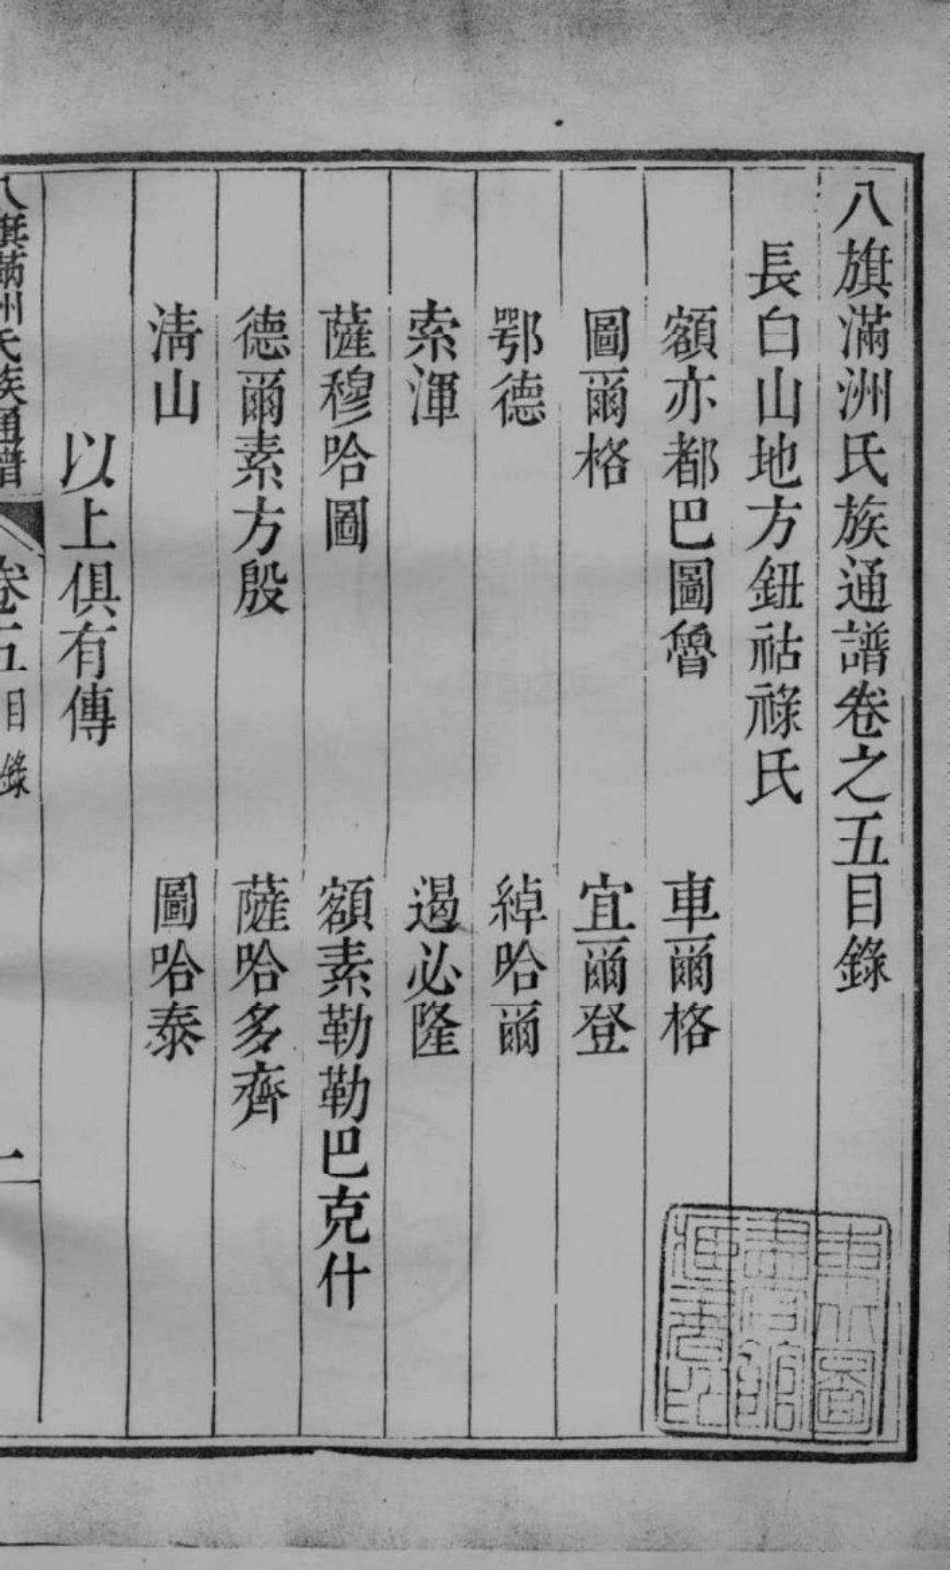 八旗滿洲氏族通譜卷之五目錄
長白山地方鈕祜祿氏
額亦都巴圖魯　車爾格
圖爾格　宜爾登
鄂德　綽哈爾
索渾　遏必隆
薩穆哈圖　額素勒勒巴克什
德爾素方殷　薩哈多齊
清山　圖哈泰
以上俱有傳
八旗滿洲氏族通譜　卷五目錄　一